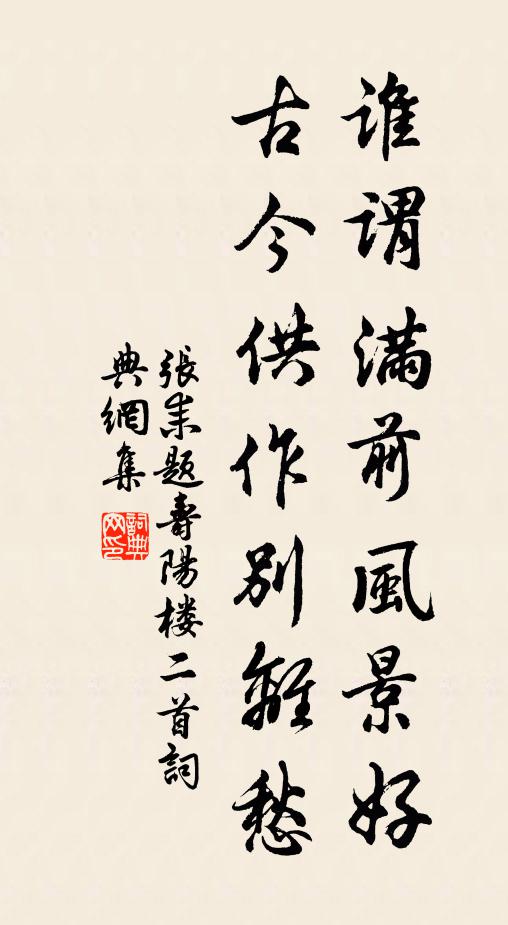 誰謂滿前風景好
古今供作別離愁
張耒題壽陽樓二首詞
典網集
詞典網印